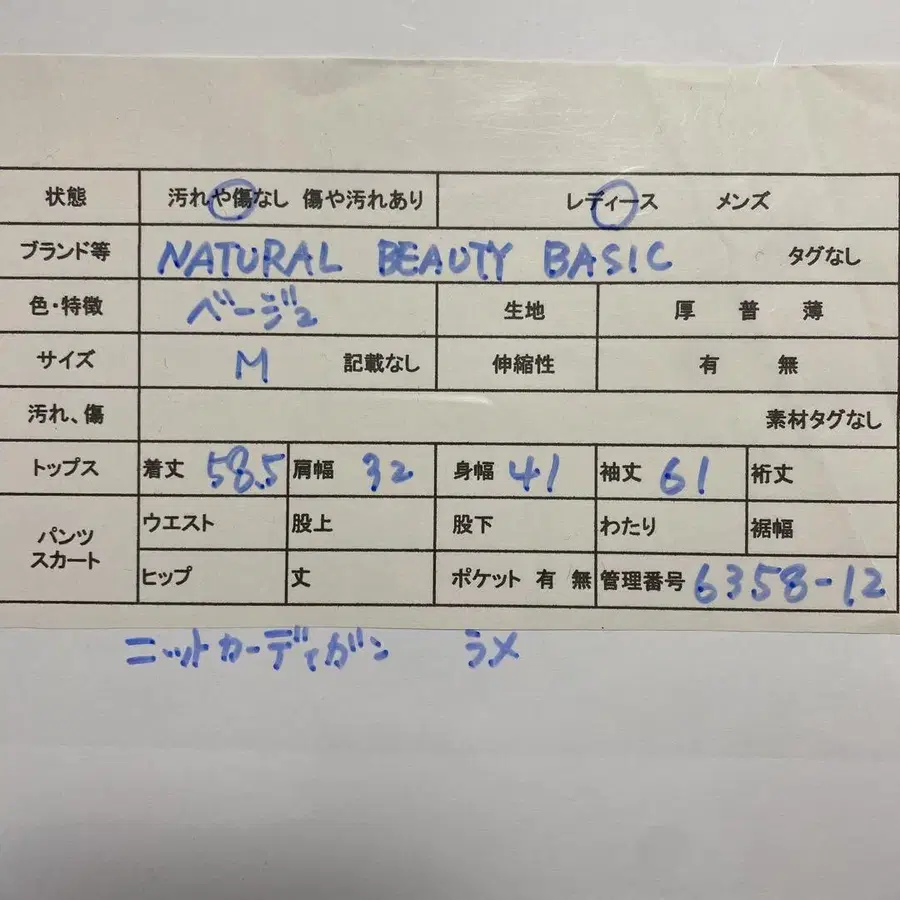 状態 汚れや傷なし 傷や汚れあり レディース メンズ
ブランド等 NATURAL BEAUTY BASIC タグなし
色・特徴 ベージュ 生地 厚 普 薄
サイズ M 記載なし 伸縮性 有 無
汚れ、傷 素材タグなし
トップス 着丈 58.5 肩幅 32 身幅 41 袖丈 61 裄丈
パンツ スカート ウエスト 股上 股下 わたり 裾幅
ヒップ 丈 ポケット 有 無 管理番号 6358-12
ニットカーディガン ラメ